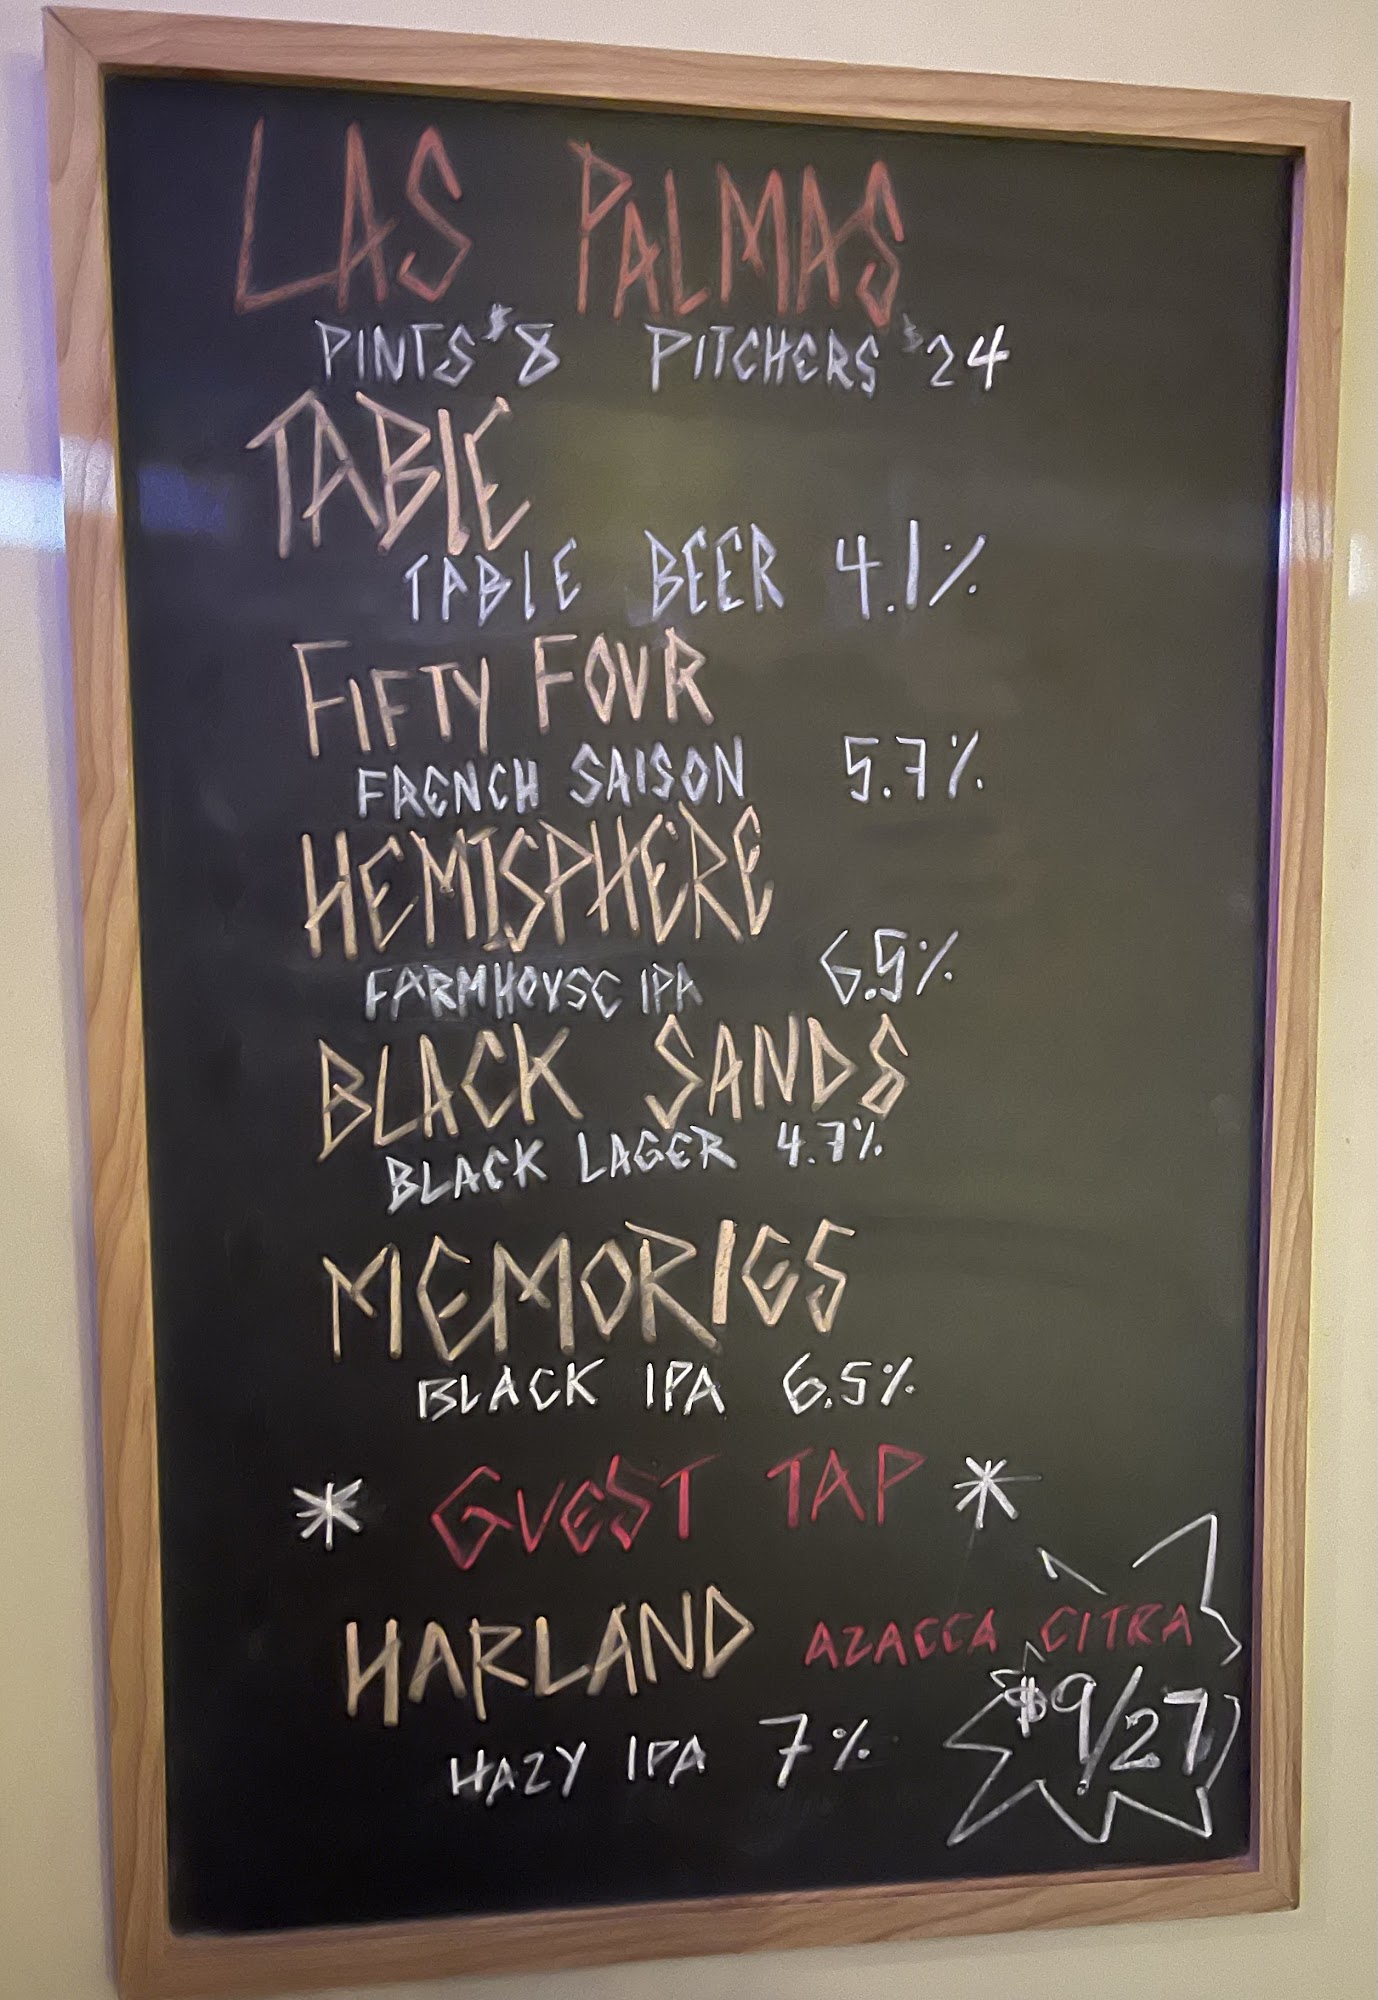 LAS PALMAS
PINTS $8 PITCHERS $24
TABLE
TABLE BEER 4.1%
FIFTY FOUR
FRENCH SAISON 5.7%
HEMISPHERE
FARMHOUSE IPA 6.5%
BLACK SANDS
BLACK LAGER 4.7%
MEMORIES
BLACK IPA 6.5%
* GUEST TAP *
HARLAND AZACCA CITRA
HAZY IPA 7% $9/27